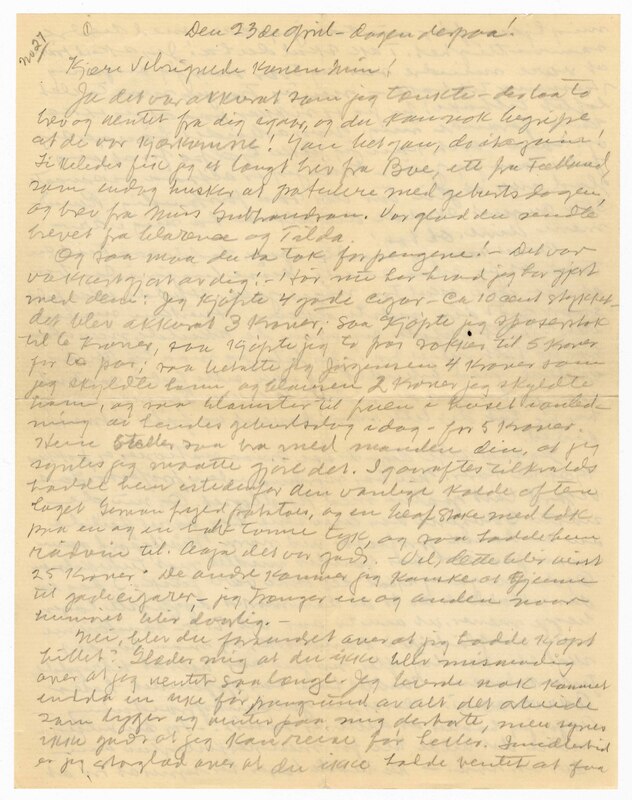 No 27
1
Den 23de april – dagen derpaa!
Kjære Velsignede Konen Min!
Ja det var akkurat som jeg tænkte – der laa to
brev og ventet fra dig igaar, og du kan nok begripe
at de var kjærkomne!
Likeledes fik jeg et langt brev fra Boe, ett fra
som endog husker at gratulere med geburtsdagen,
og brev fra Miss Gulbrandsen. Var glad du sendte
brevet fra Clarence og Tilda.
Og saa maa du ha tak for pengene! – Det var
vakkert gjort av dig! – Hør nu her hvad jeg har gjort
med dem: Jeg kjøpte 4 gode cigar – ca 10 cent stykket
det blev akkurat 3 Kroner; saa kjøpte jeg spaserstok
til 6 Kroner, saa kjøpte jeg to par sokker til 5 Kroner
for to par; saa betalte jeg Jørgensen 4 Kroner som
jeg skyldte ham, og Clausen 2 Kroner jeg skyldte
ham, og saa blomster til fruen i huset i anled-
ning av hendes geburtsdag idag – for 5 Kroner.
Hun steller saa bra med manden din, at jeg
syntes jeg maatte gjøre det. Igaaraftes tilkvelds
hadde hun istedenfor den vanlige kolde aften
laget German fried potatoes, og en beaf steke med løk
paa en og en halv tomme tyk, og saa hadde hun
rødvin til. Aaja det var godt. – Vel, dette blir vist
25 Kroner. De andre kommer jeg kanske at gjemme
til gode cigarer – jeg trænger en og anden naar
humøret blir daarlig. –
Nei, blev du forundret over at jeg hadde kjøpt
billet? Glæder mig at du ikke blev mismodig
over at jeg ventet saa længe. Jeg burde nok kommet
endda en uke før paa grund av alt det arbeide
som ligger og venter paa mig derborte, men synes
ikke godt at jeg kan reise før heller. Imidlertid
er jeg saa glad over at du ikke hadde ventet at faa